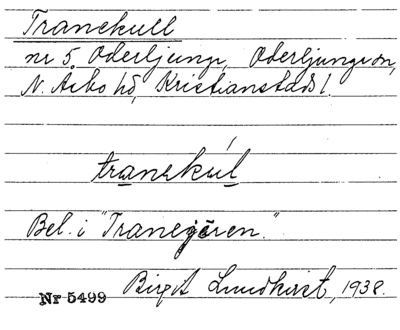 Tranekull
nr 5. Oderljunga, Oderljunga sn,
N. Åsbo hd, Kristianstads l.
tranekúl
Bel. i "Tranegären."
Birgit Lundkvist, 1938.
Nr 5499